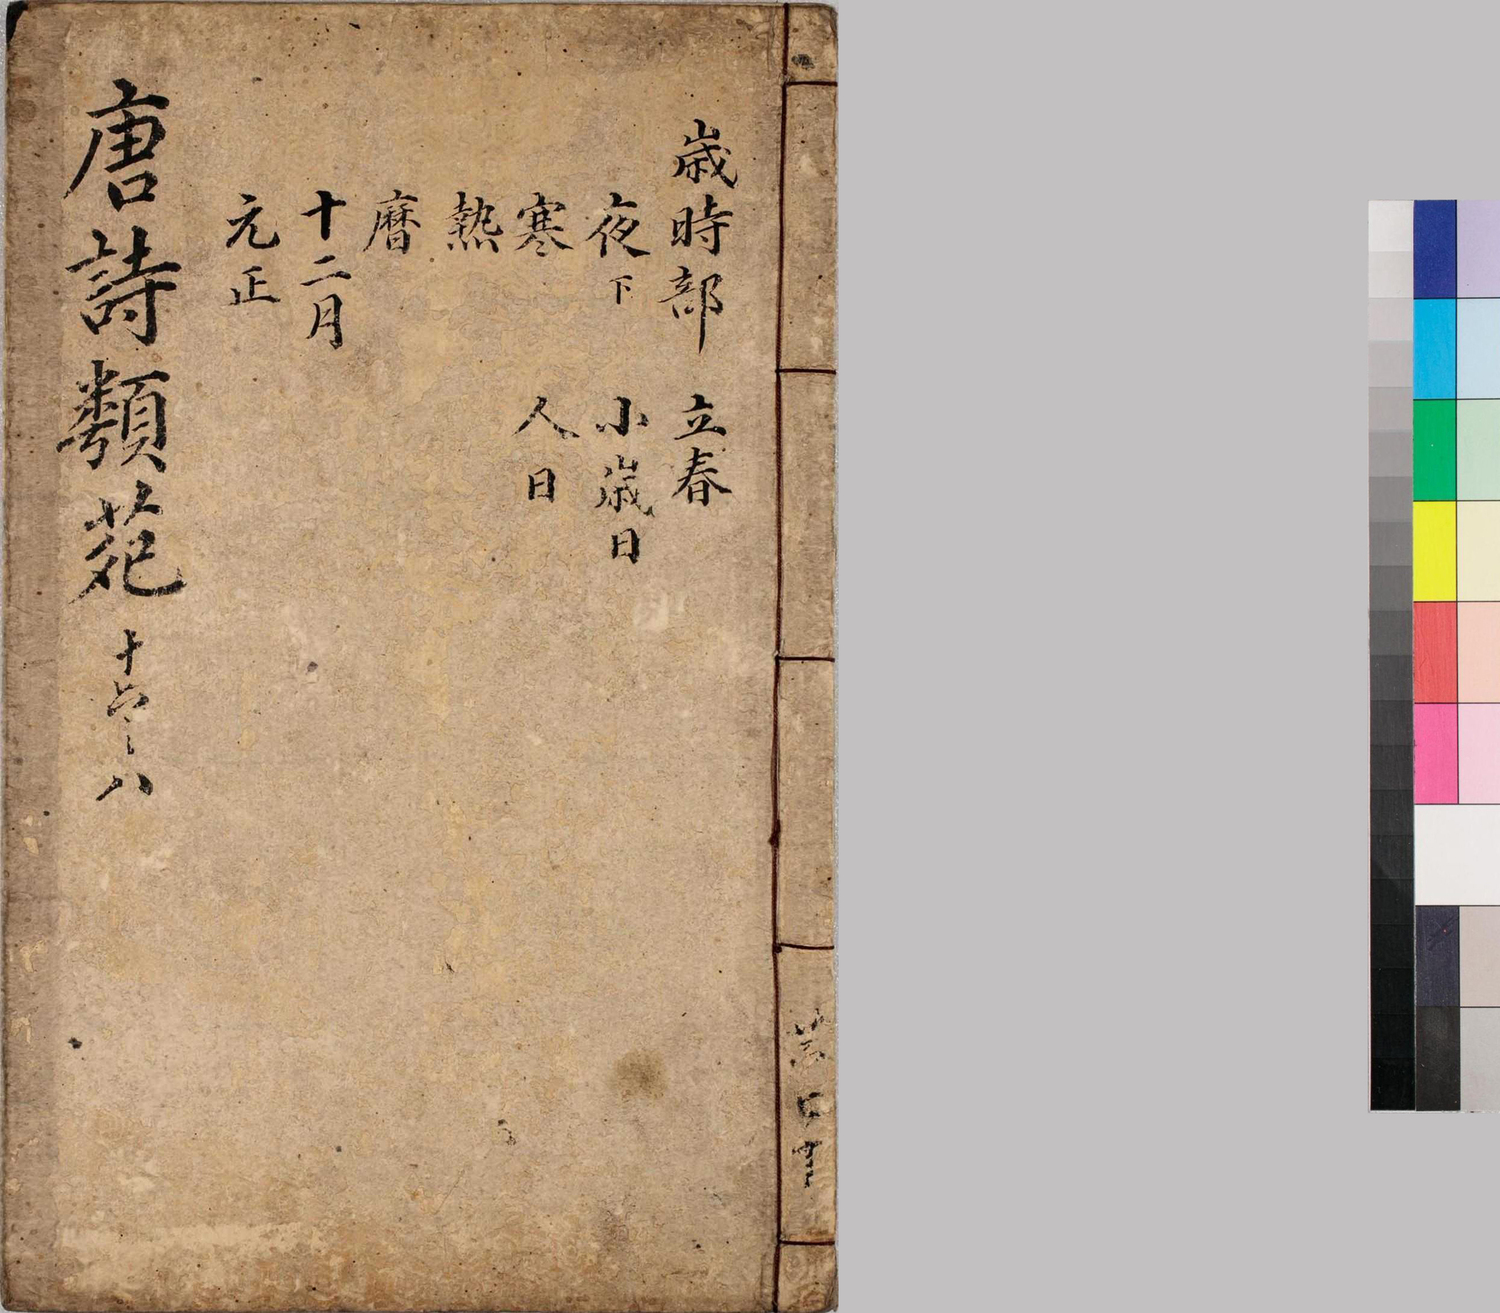 歲時部 立春
夜下 小歲日
寒 人日
熱
曆
十二月
元正
唐詩類苑 十六之八